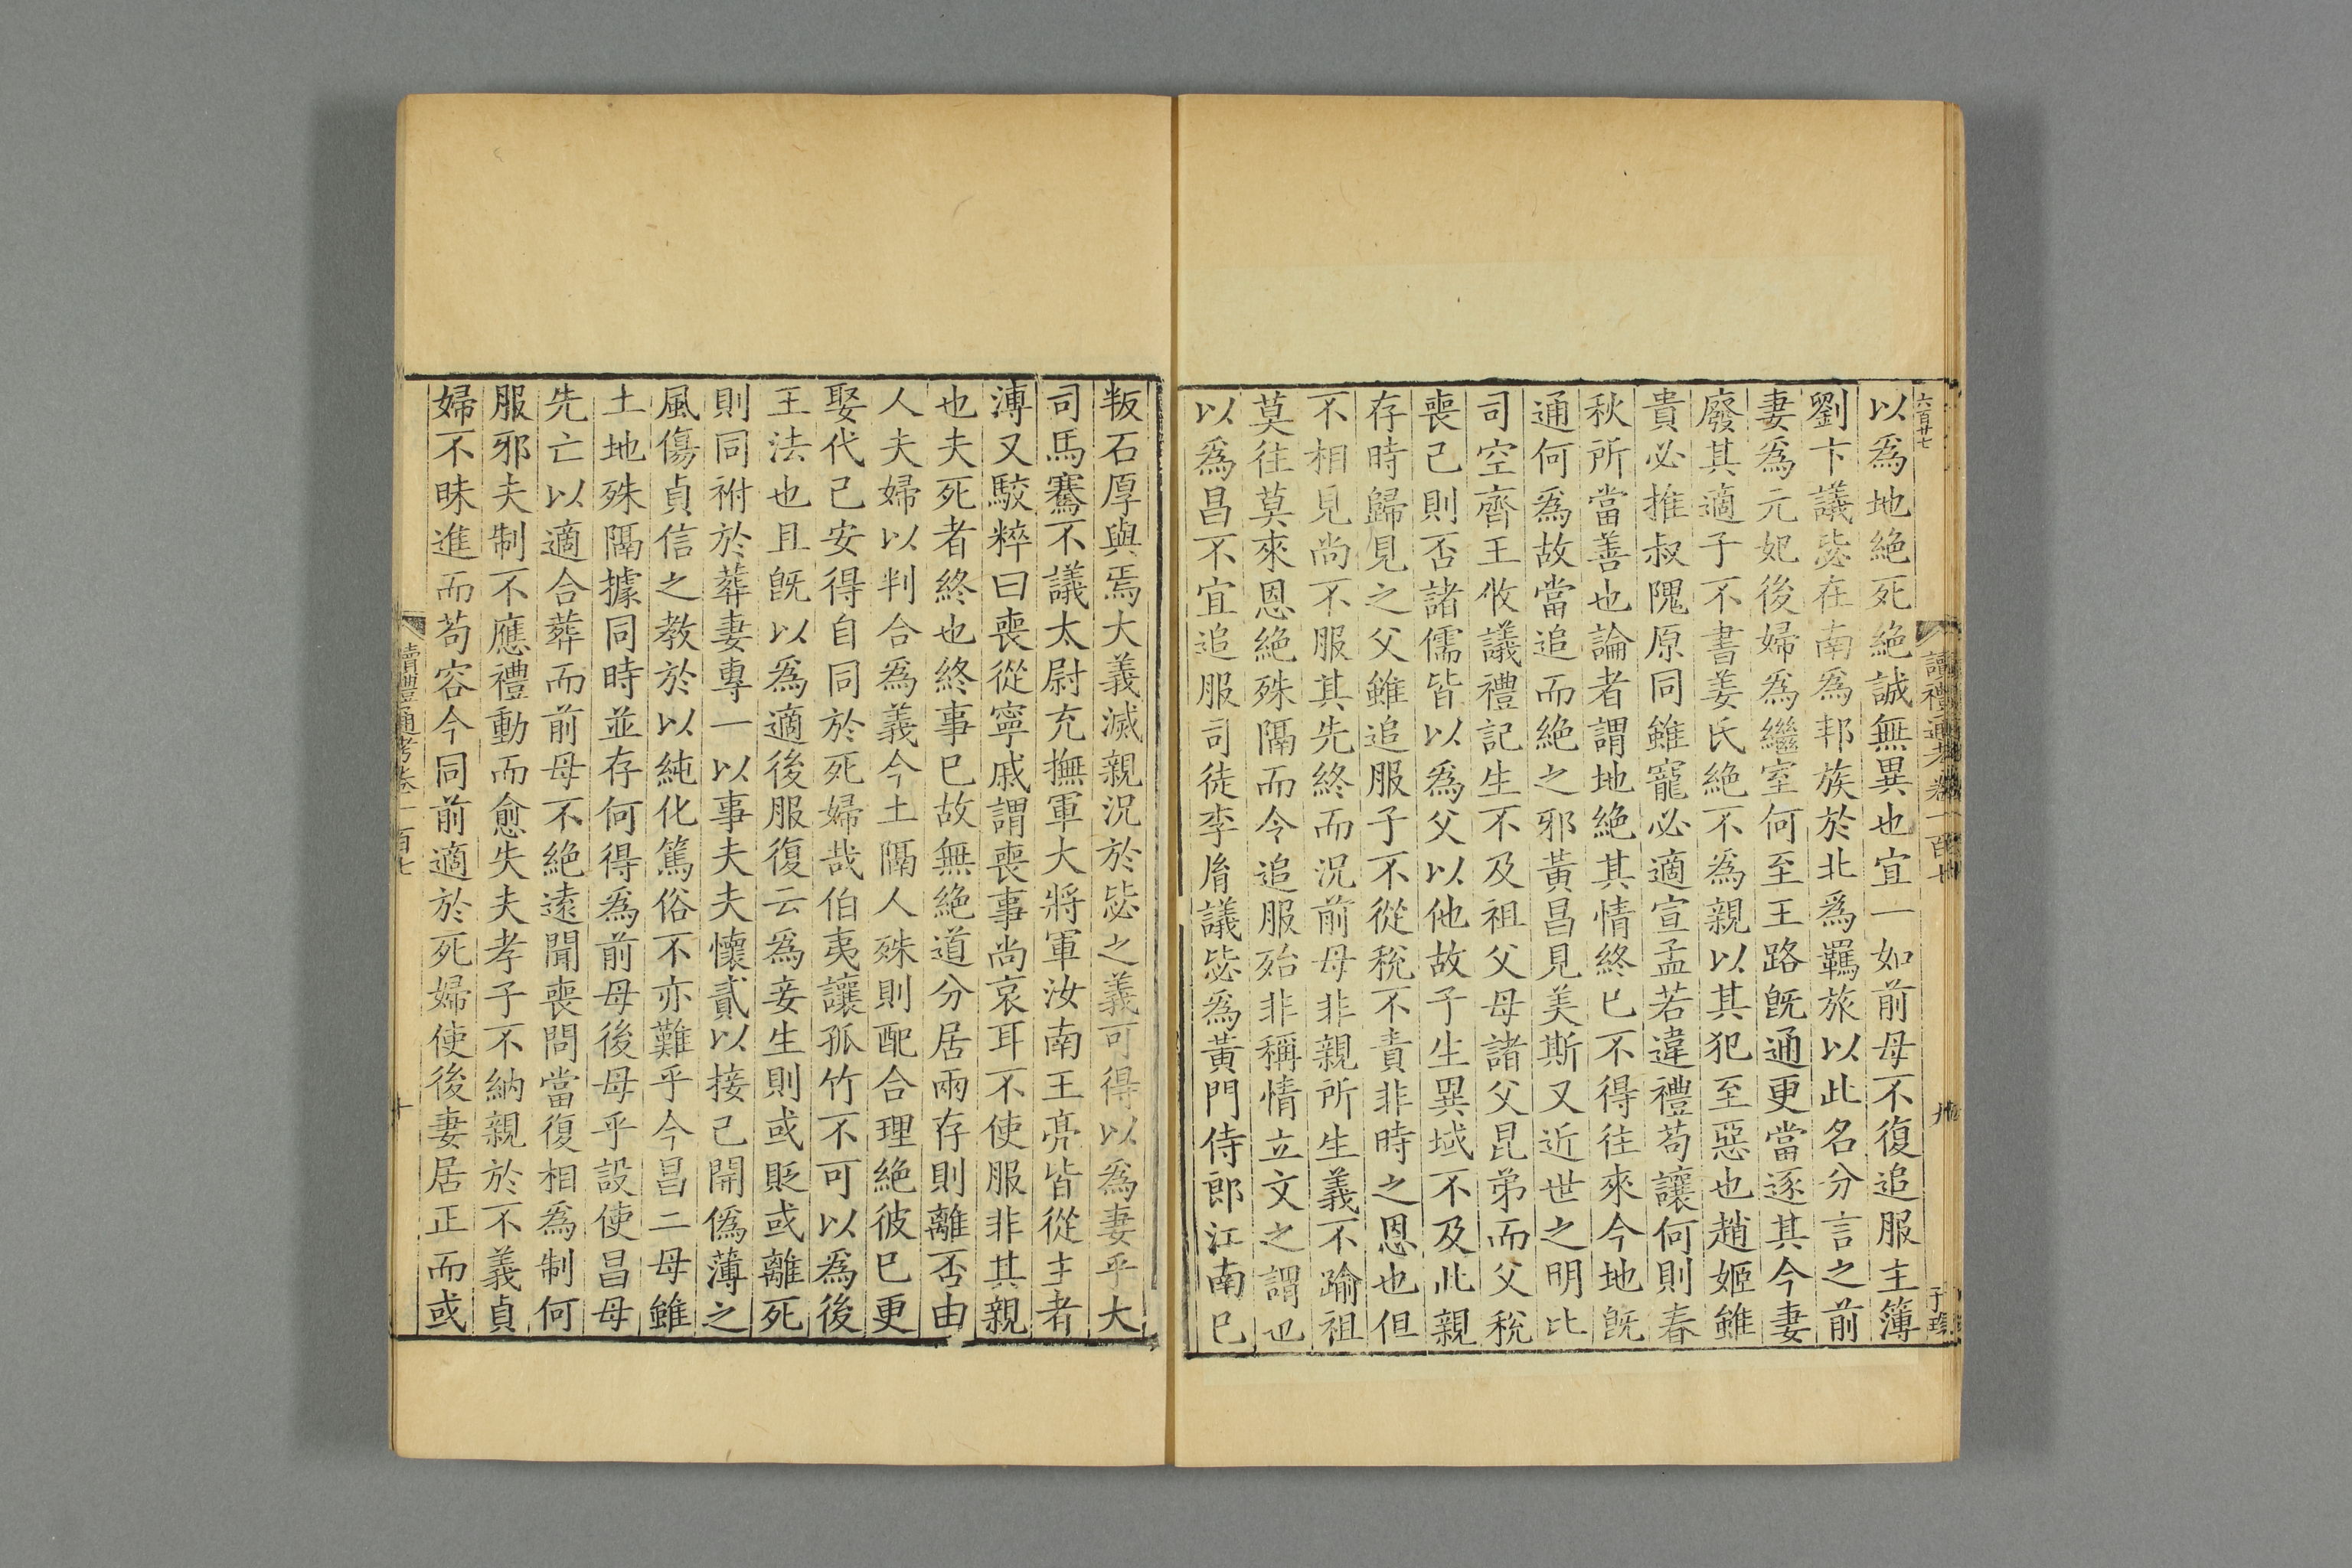 六百廿七
讀禮通考卷一百七
九
以爲地絕死絕誠無異也宜一如前母不復追服主簿
劉卞議毖在南爲邦族於北爲羈旅以此名分言之前
妻爲元妃後婦爲繼室何至王路旣通更當逐其今妻
廢其適子不書姜氏絕不爲親以其犯至惡也趙姬雖
貴必推叔隗原同雖寵必適宣孟若違禮苟讓何則春
秋所當善也論者謂地絕其情終已不得往來今地旣
通何爲故當追而絕之邪黃昌見美斯又近世之明比
司空齊王攸議禮記生不及祖父母諸父昆弟而父稅
喪己則否諸儒皆以爲父以他故子生異域不及此親
存時歸見之父雖追服子不從稅不責非時之恩也但
不相見尚不服其先終而況前母非親所生義不踰祖
莫往莫來恩絕殊隔而今追服殆非稱情立文之謂也
以爲昌不宜追服司徒李胤議毖爲黃門侍郎江南已
叛石厚與焉大義滅親況於毖之義可得以爲妻乎大
司馬騫不議太尉充撫軍大將軍汝南王亮皆從主者
溥又駮粹曰喪從寧戚謂喪事尚哀耳不使服非其親
也夫死者終也終事已故無絕道分居兩存則離否由
人夫婦以判合爲義今土隔人殊則配合理絕彼已更
娶代己安得自同於死婦哉伯夷讓孤竹不可以爲後
王法也且旣以爲適後服復云爲妾生則或貶或離死
則同祔於葬妻專一以事夫夫懷貳以接己開僞薄之
風傷貞信之教於以純化篤俗不亦難乎今昌二母雖
土地殊隔據同時並存何得爲前母後母乎設使昌母
先亡以適合葬而前母不絕遠聞喪問當復相爲制何
服邪夫制不應禮動而愈失夫孝子不納親於不義貞
婦不昧進而苟容今同前適於死婦使後妻居正而或
讀禮通考卷一百七
十